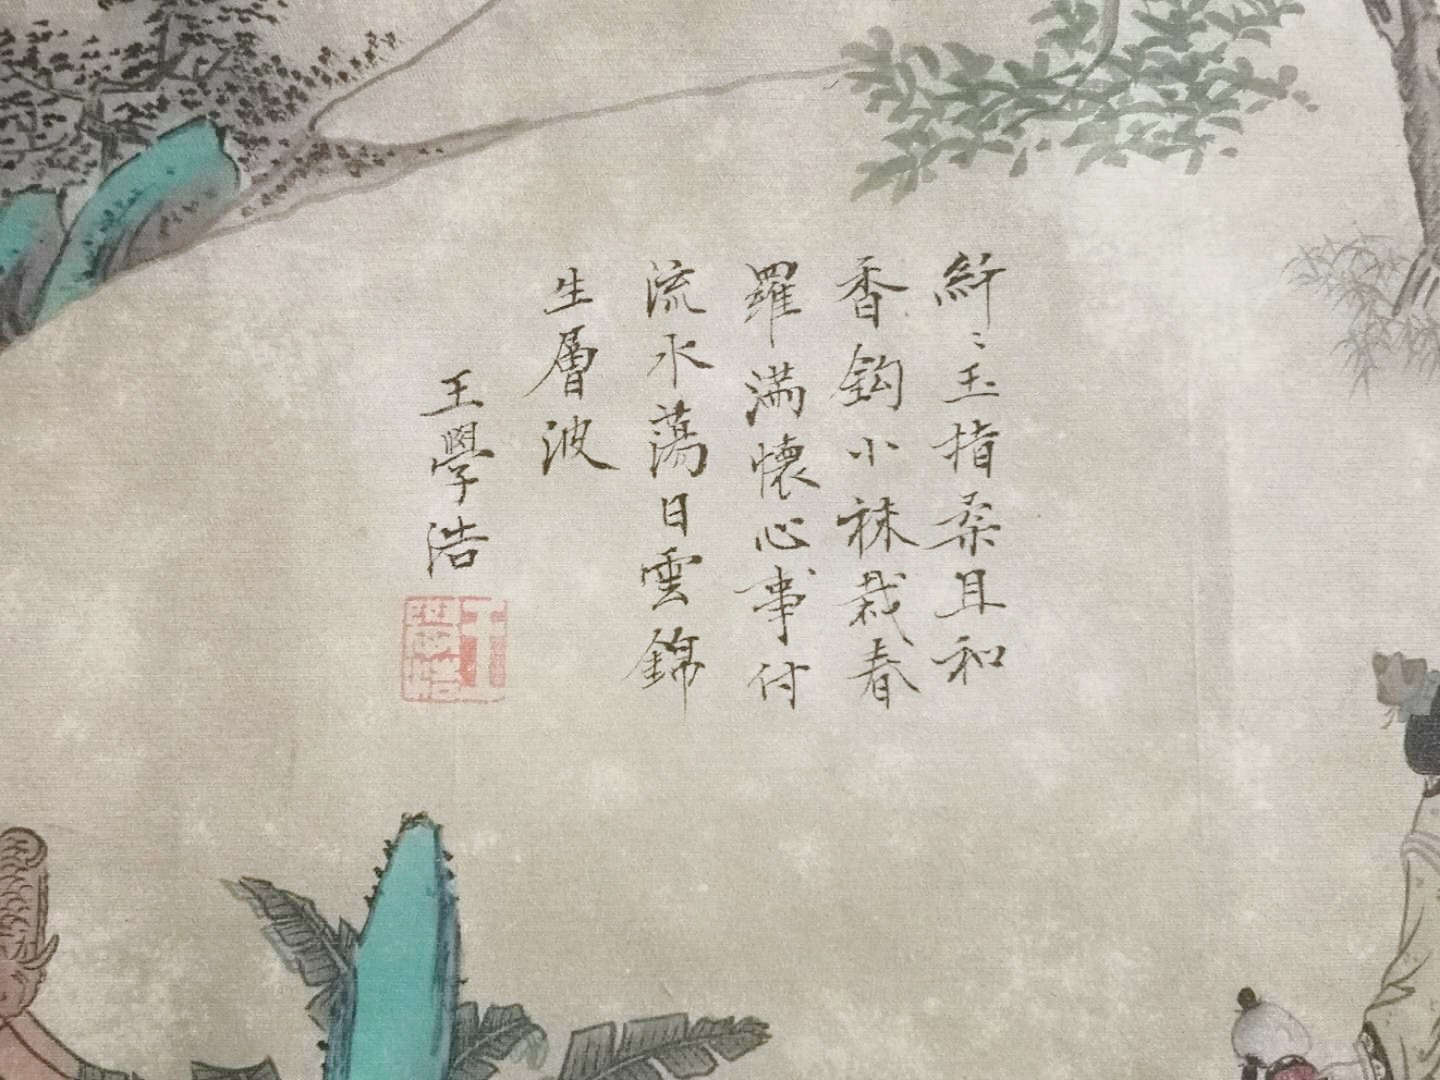 纤〻玉指柔且和
香鈎小袜裁春
羅満懷心事付
流水蕩日雲錦
生層波
王學浩